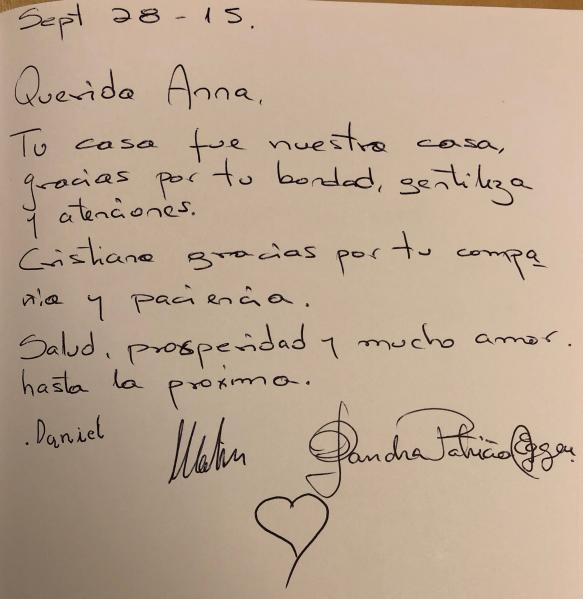 Sept 28-15.
Querida Anna,
Tu casa fue nuestra casa,
gracias por tu bondad, gentileza
y atenciones.
Cristiane gracias por tu compa
ñia y paciencia.
Salud, prosperidad y mucho amor.
hasta la proxima.
.Daniel
Sandra